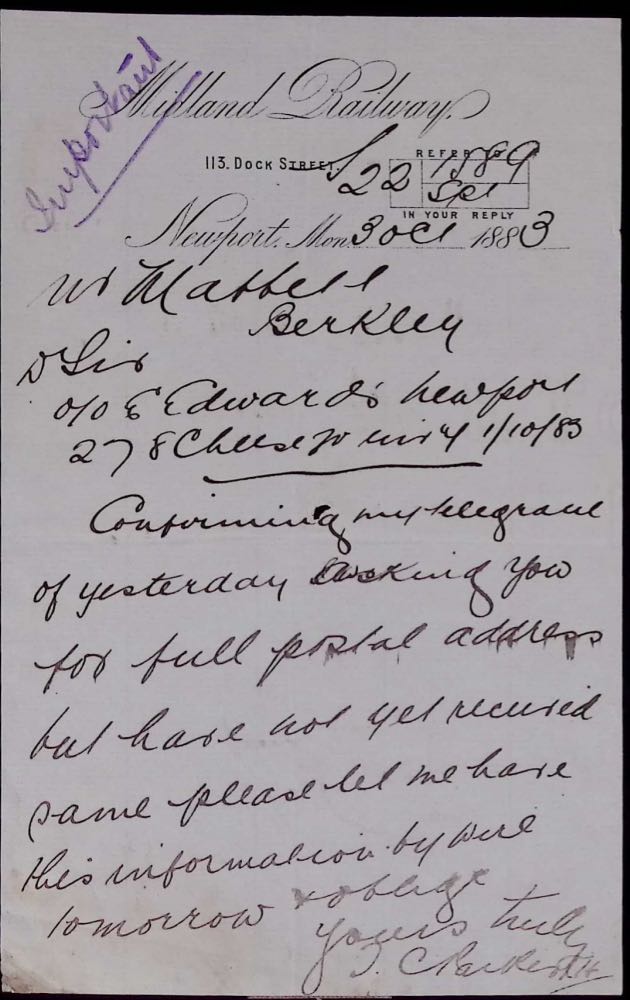 Important
Midland Railway.
113. DOCK STREET.
REFER TO
S22 1589
Spl
IN YOUR REPLY
Newport. Mon. 3 Oct 1883
Mr Mabbett
Berkley
D Sir
o/o E Edwards Newport
278 Cheese inv 4 1/10/83
Confirming my telegram
of yesterday asking you
for full postal address
but have not yet received
same please let me have
this information by wire
tomorrow & oblige
yours truly